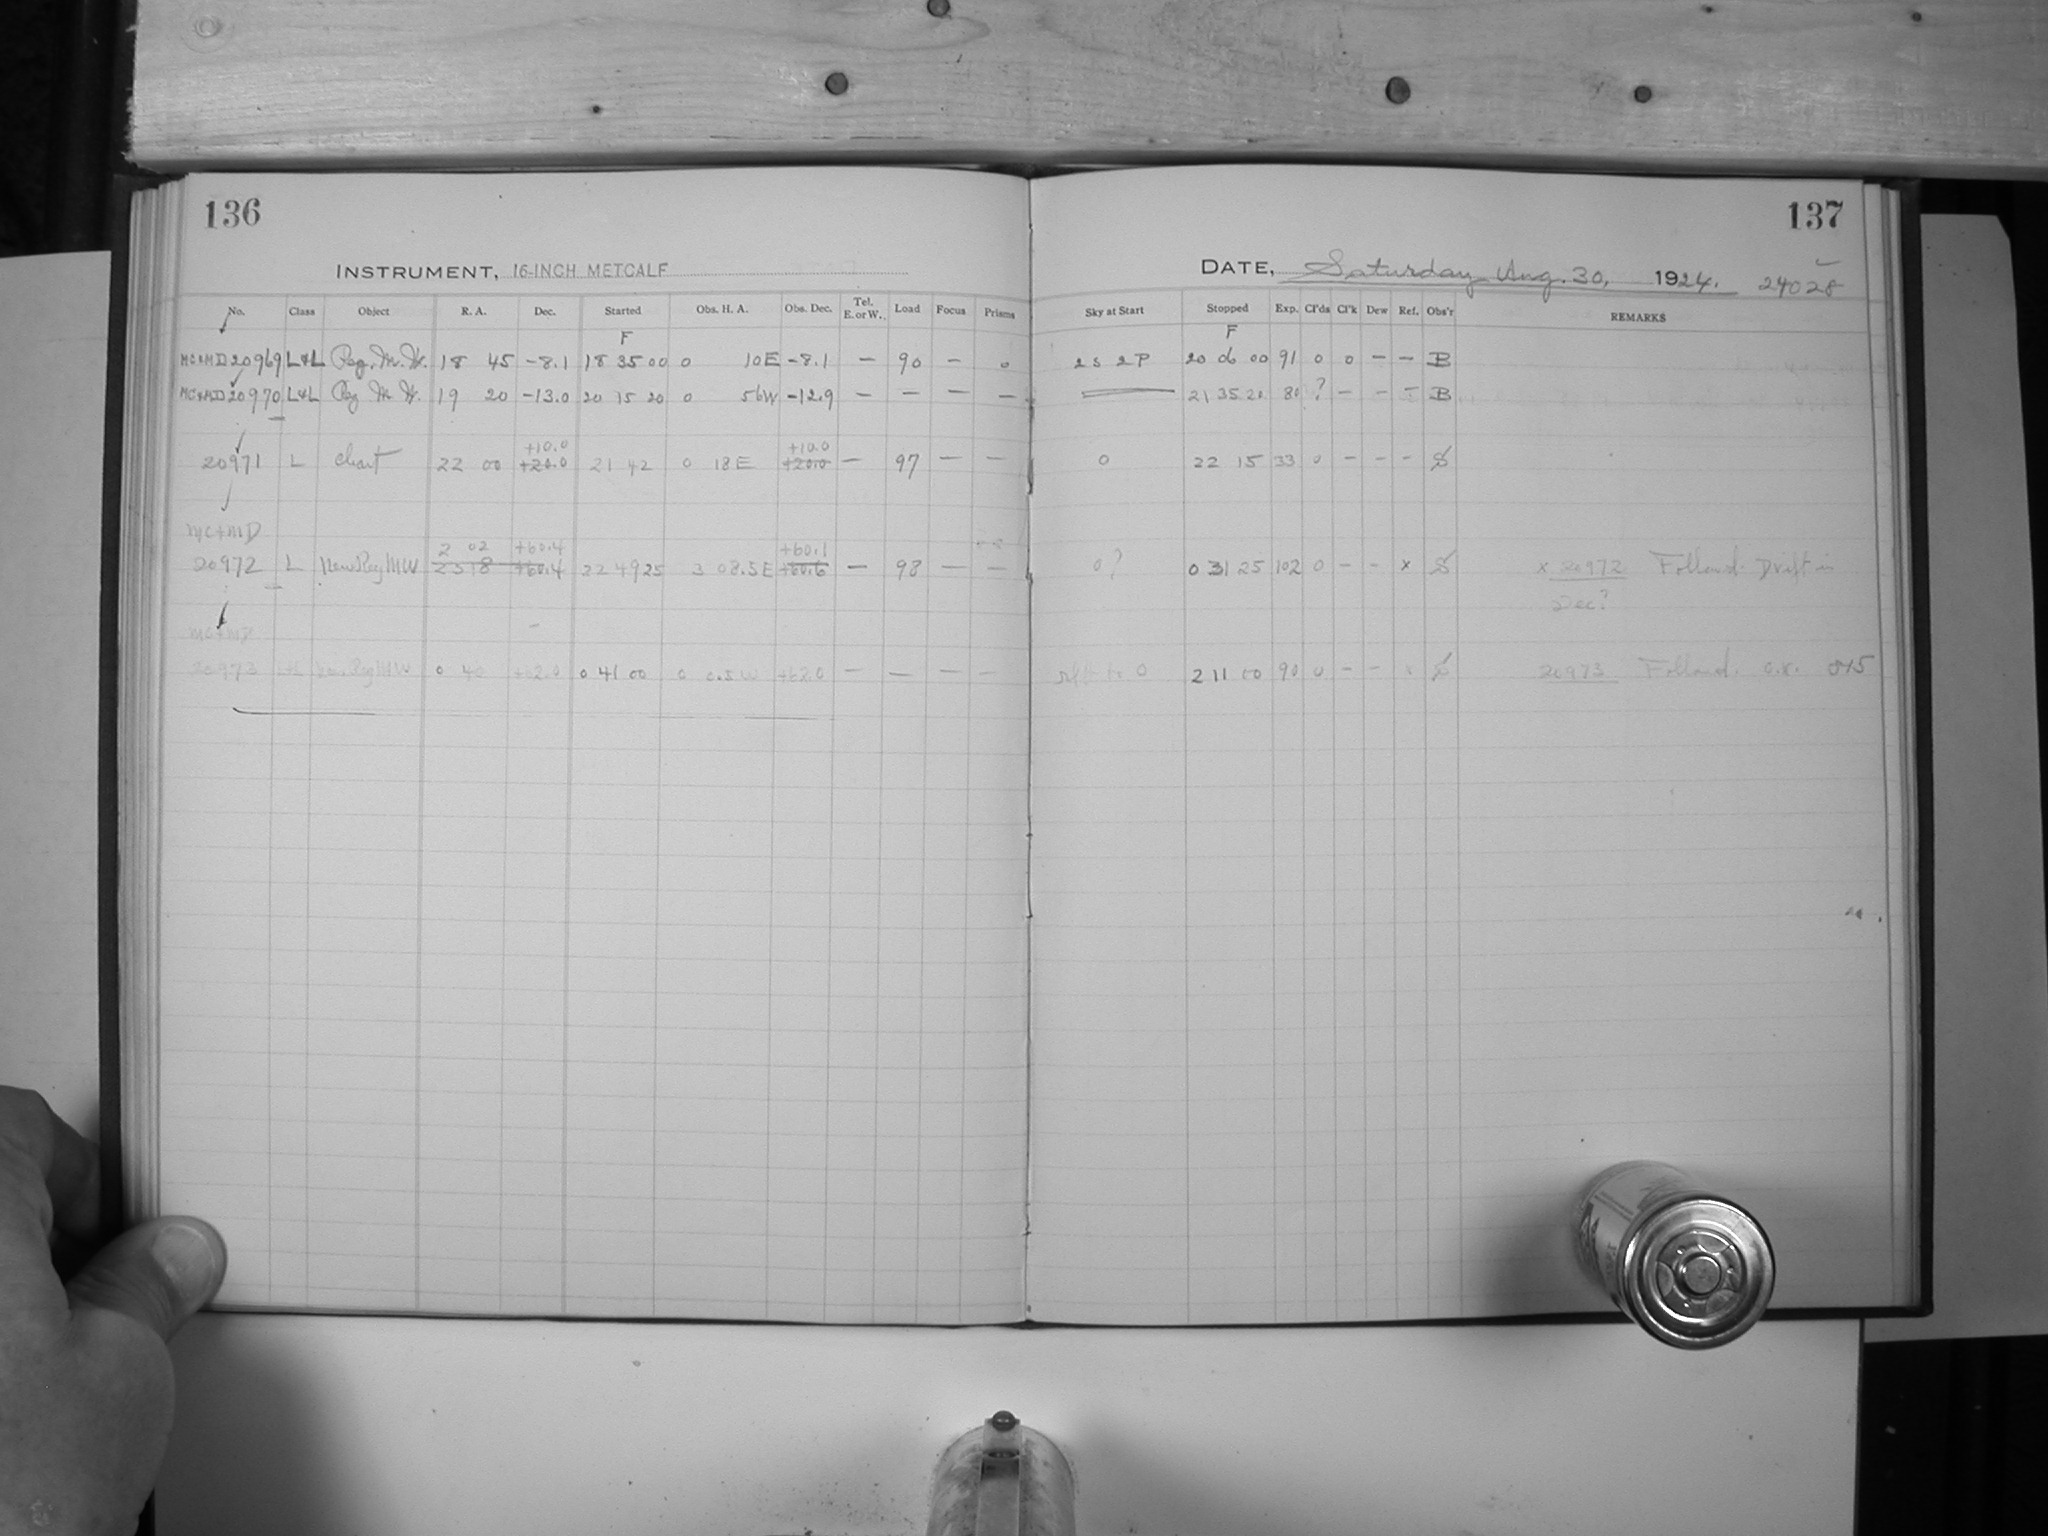 136
137
INSTRUMENT, 16-INCH METCALF
DATE, Saturday Aug. 30, 1924. 24028
No. Class Object R. A. Dec. Started Obs. H. A. Obs. Dec. Tel. E. or W. Load Focus Prisms Sky at Start Stopped Exp. Cl'ds Cl'k Dew Ref. Obs'r REMARKS
F F
MC&MD 20969 L&L Reg. M. W. 18 45 -8.1 18 35 00 0 10E -8.1 — 90 — 0 2S 2P 20 06 00 91 0 0 — — B
MC&MD 20970 L&L Reg M W. 19 20 -13.0 20 15 20 0 56W -12.9 — — — — 21 35 20 80 ? — — I B
+10.0 +10.0
20971 L Chart 22 00 +20.0 21 42 0 18E +20.0 — 97 — — 0 22 15 33 0 — — — S
MC+MD
2 02 +60.4 +60.1
20972 L New Reg MW 23 18 +60.4 22 49 25 3 08.5E +60.6 — 98 — — 0? 0 31 25 102 0 — — x S x 20972 Followed. Drift in
Dec?
MC+MD
20973 L+L New Reg MW 0 40 +62.0 0 41 00 0 0.5W +62.0 — — — — 0 2 11 00 90 0 — — x S 20973 Followed. O.K.